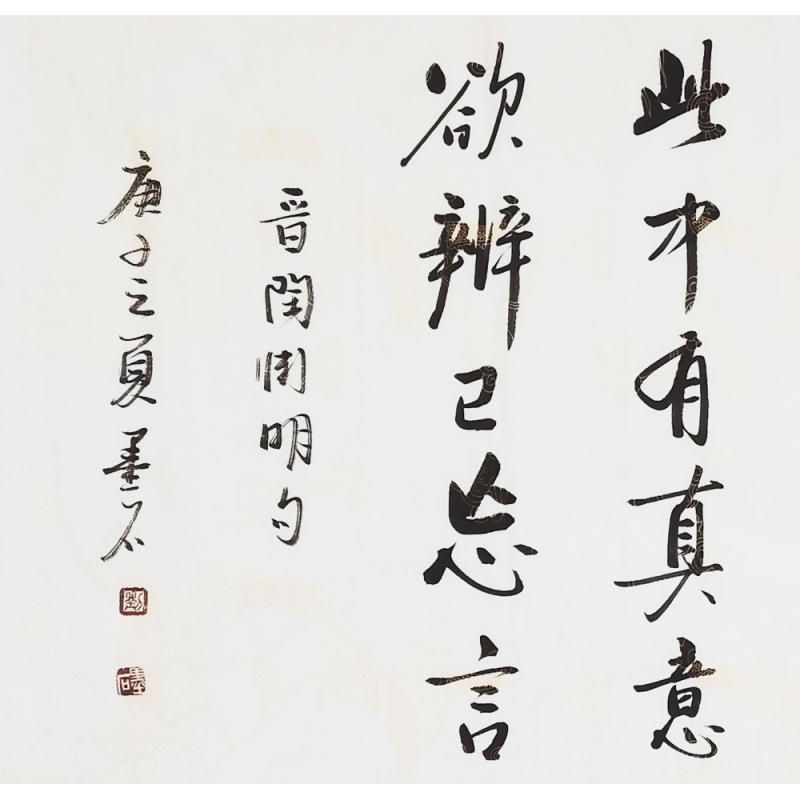 此中有真意
欲辨已忘言
晋陶渊明句
庚子之夏墨石